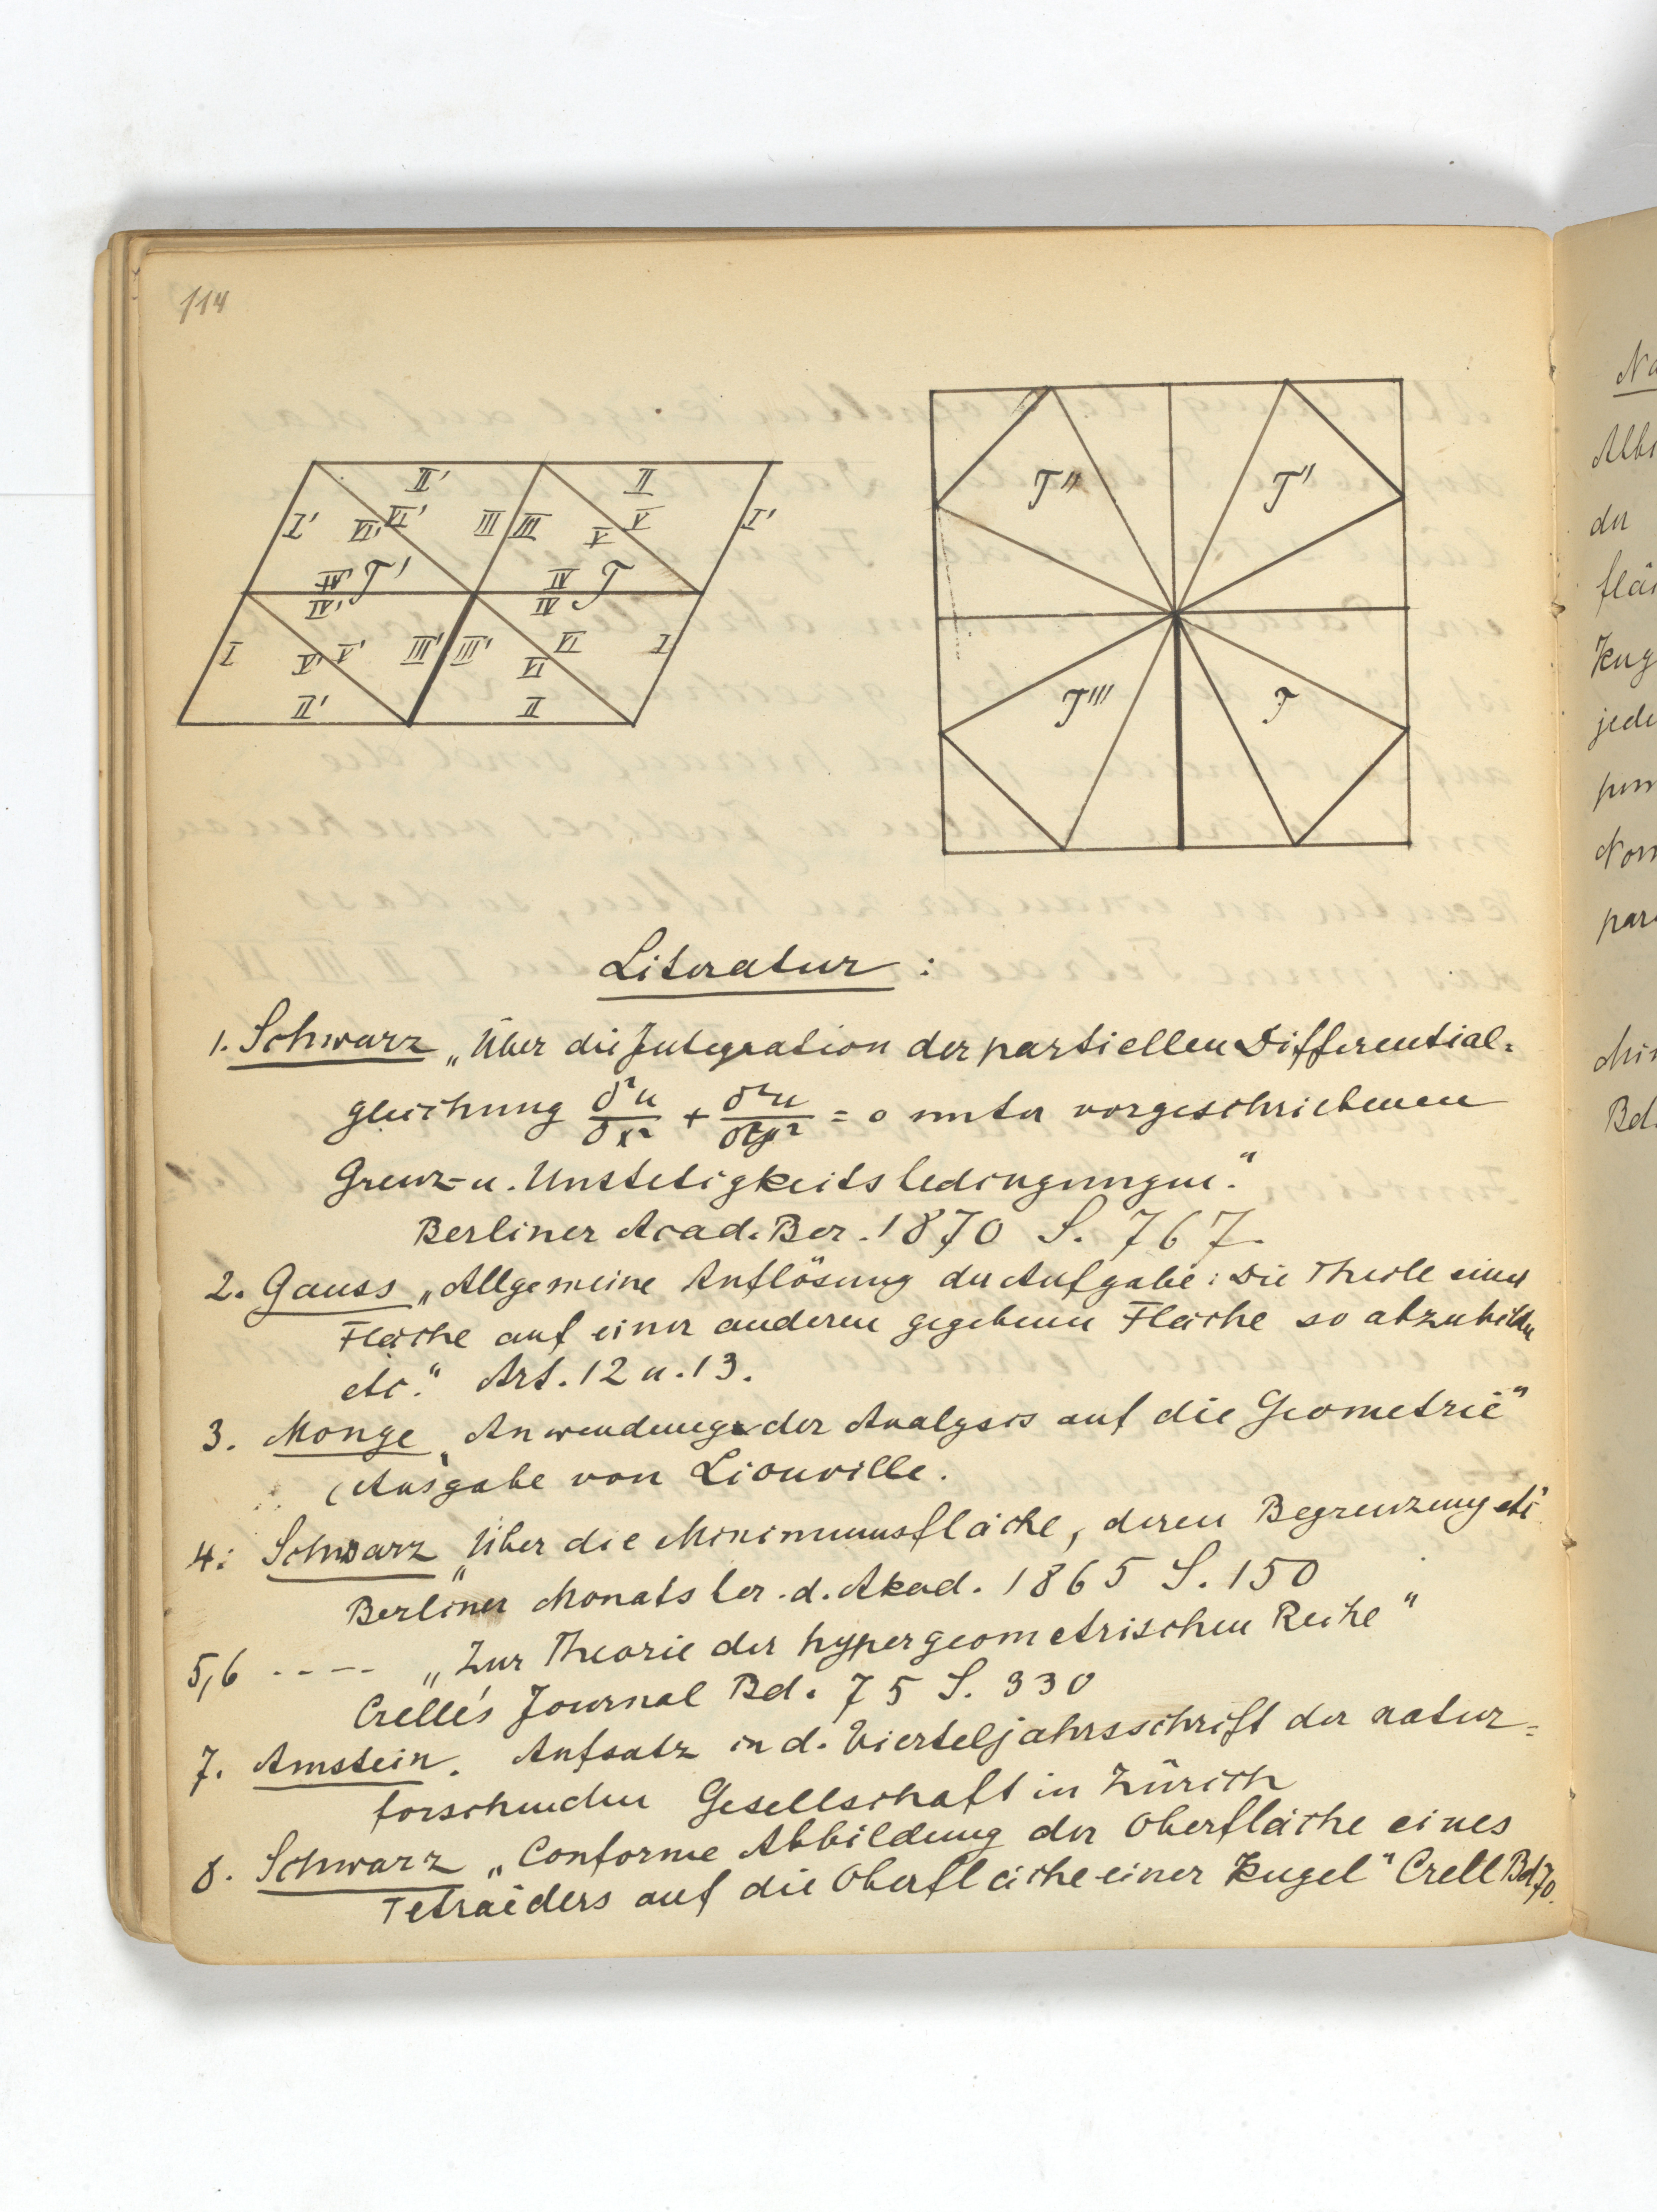 114
II' II
I' VI' VI' III III V V I'
IV' T' IV T
IV' IV
I V' V' III' III' VI VI I
II' II
T'' T'
T''' T
Literatur :
1. Schwarz „Über die Integration der partiellen Differential=
gleichung δ²u/δx² + δ²u/δy² = 0 unter vorgeschriebenen
Grenz- u. Unstetigkeitsbedingungen."
Berliner Acad. Ber. 1870 S. 767.
2. Gauss „Allgemeine Auflösung der Aufgabe: Die Theile einer
Fläche auf einer anderen gegebenen Fläche so abzubilden
etc." Art. 12 u. 13.
3. Monge „Anwendung der Analysis auf die Geometrie"
(Ausgabe von Liouville.
4. Schwarz „Über die Minimumsfläche, deren Begrenzung etc"
Berliner Monatsber. d. Akad. 1865 S. 150
5,6 ---- „Zur Theorie der hypergeometrischen Reihe"
Crelle's Journal Bd. 75 S. 330
7. Amstein. Aufsatz in d. Vierteljahrsschrift der natur=
forschenden Gesellschaft in Zürich
8. Schwarz „Conforme Abbildung der Oberfläche eines
Tetraëders auf die Oberfläche einer Kugel" Crell Bd 70.
Albi
der
flä
Kug
jede
par
Bd.